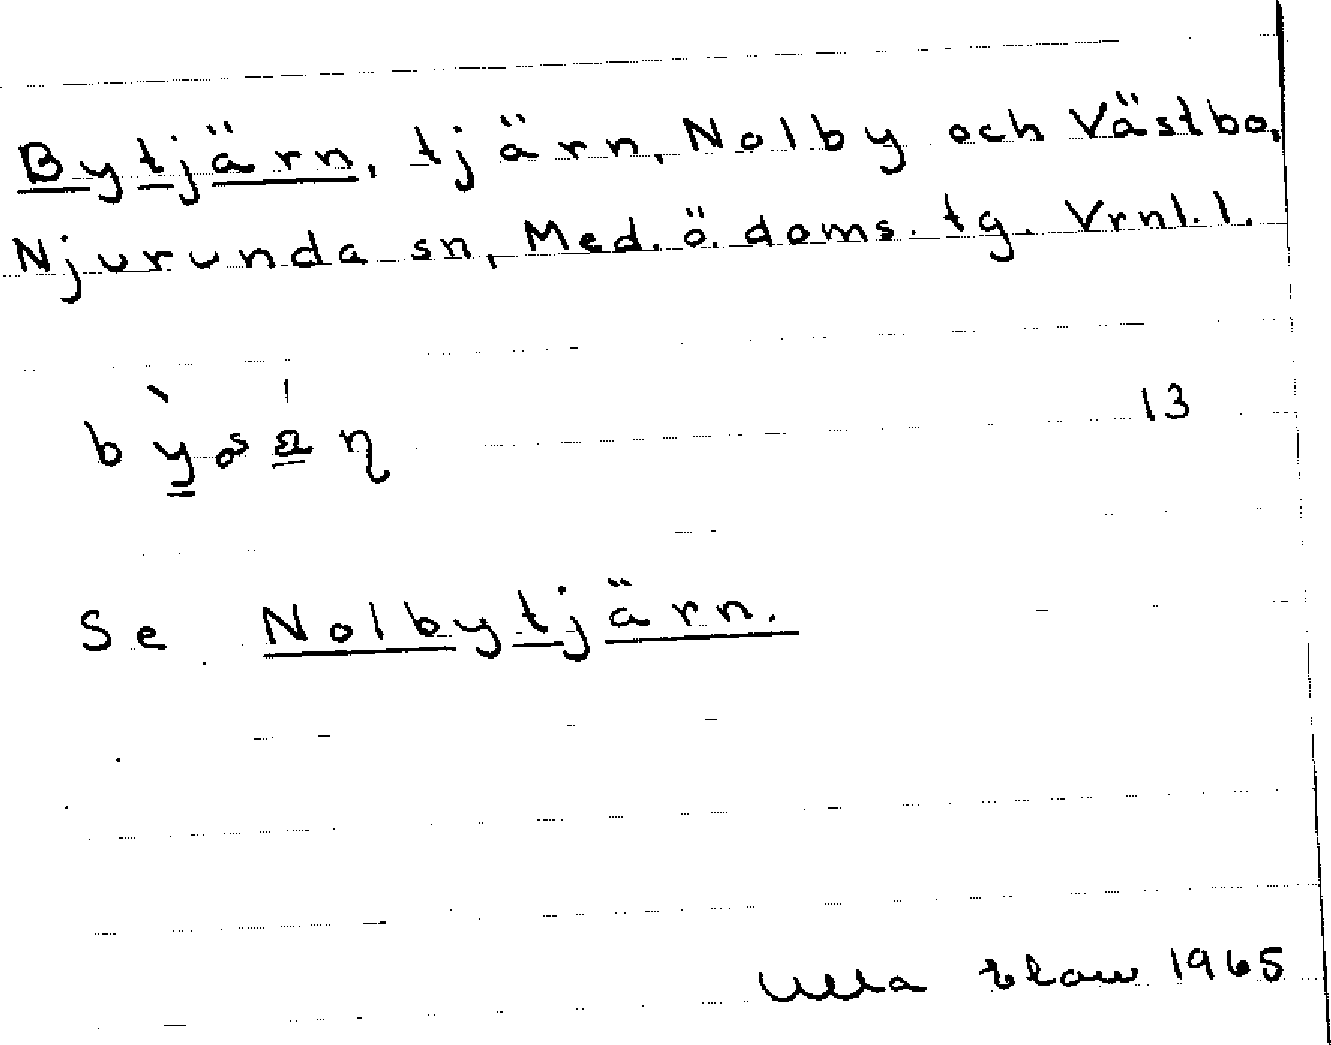 Bytjärn, tjärn, Nolby och Västbo,
Njurunda sn, Med. ö. doms. tg. Vrnl. l.
13
Se Nolbytjärn.
Ulla 1965